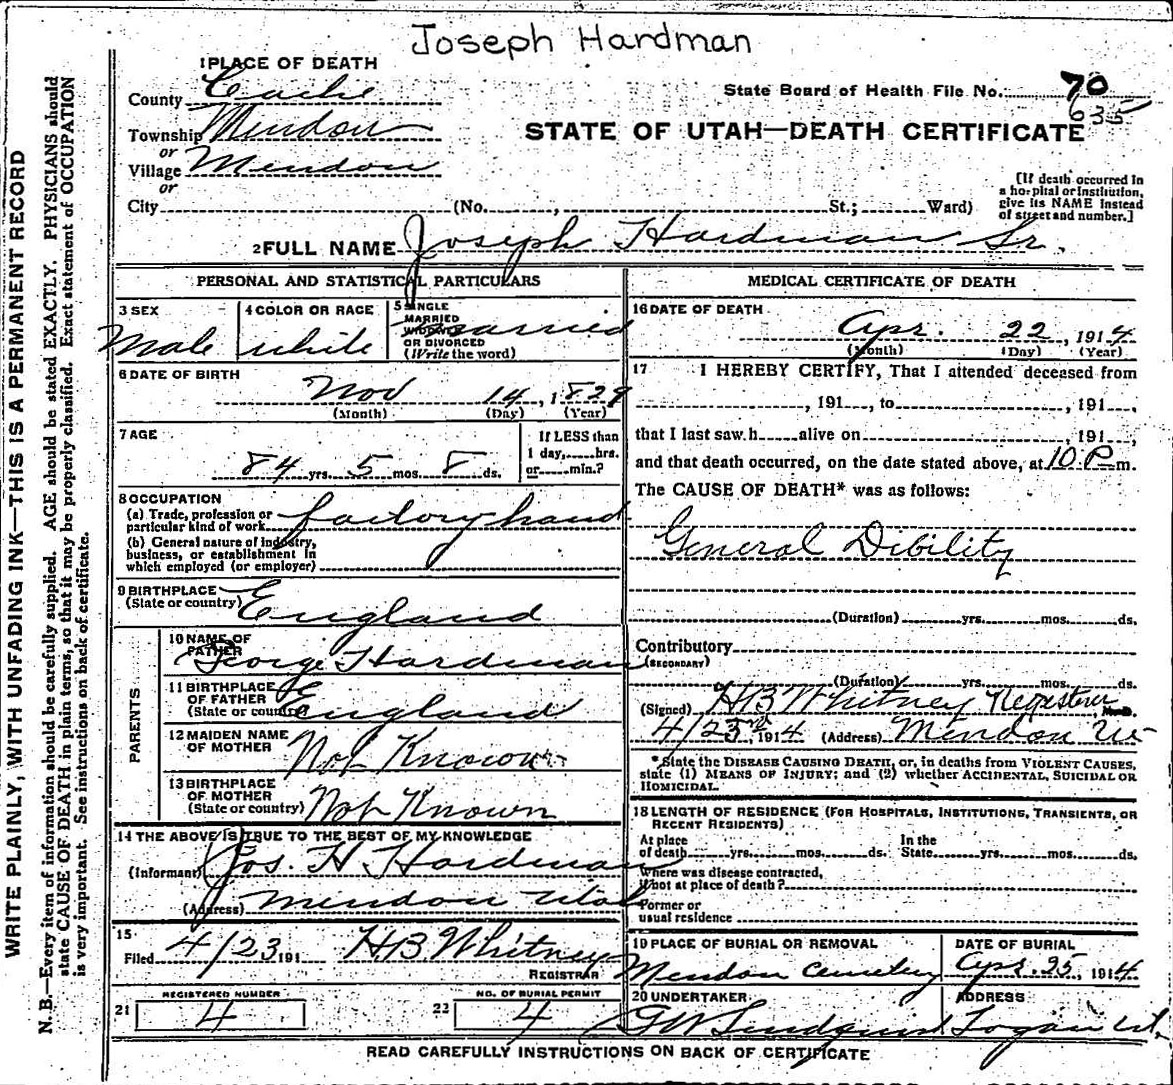 Joseph Hardman
1 PLACE OF DEATH
County Cache
State Board of Health File No. 70
635
Township Mendon
or
STATE OF UTAH—DEATH CERTIFICATE
Village Mendon
or
City (No. , St.; Ward)
[If death occurred in
a hospital or institution,
give its NAME instead
of street and number.]
2 FULL NAME Joseph Hardman Sr.
PERSONAL AND STATISTICAL PARTICULARS
3 SEX
Male
4 COLOR OR RACE
white
5 SINGLE
MARRIED
WIDOWED
OR DIVORCED
(Write the word)
Married
6 DATE OF BIRTH
Nov 14, 1829
(Month) (Day) (Year)
7 AGE
84 yrs. 5 mos. 8 ds.
If LESS than
1 day, hrs.
or min.?
8 OCCUPATION
(a) Trade, profession or
particular kind of work factory hand
(b) General nature of industry,
business, or establishment in
which employed (or employer)
9 BIRTHPLACE
(State or country) England
PARENTS
10 NAME OF
FATHER
George Hardman
11 BIRTHPLACE
OF FATHER
(State or country) England
12 MAIDEN NAME
OF MOTHER Not Known
13 BIRTHPLACE
OF MOTHER
(State or country) Not Known
14 THE ABOVE IS TRUE TO THE BEST OF MY KNOWLEDGE
(Informant) Jos. H Hardman
(Address) Mendon Utah
15
Filed 4/23 191 H B Whitney
REGISTRAR
21 REGISTERED NUMBER
4
22 NO. OF BURIAL PERMIT
4
MEDICAL CERTIFICATE OF DEATH
16 DATE OF DEATH
Apr. 22, 1914
(Month) (Day) (Year)
17 I HEREBY CERTIFY, That I attended deceased from
, 191 , to , 191 ,
that I last saw h alive on , 191 ,
and that death occurred, on the date stated above, at 10 P m.
The CAUSE OF DEATH* was as follows:
General Dibility
(Duration) yrs. mos. ds.
Contributory
(SECONDARY)
(Duration) yrs. mos. ds.
(Signed) H B Whitney Regesterer M.D.
4/23rd, 1914 (Address) Mendon Ut
* State the DISEASE CAUSING DEATH, or, in deaths from VIOLENT CAUSES,
state (1) MEANS OF INJURY; and (2) whether ACCIDENTAL, SUICIDAL OR
HOMICIDAL.
18 LENGTH OF RESIDENCE (FOR HOSPITALS, INSTITUTIONS, TRANSIENTS, OR
RECENT RESIDENTS)
At place
of death yrs. mos. ds.
In the
State yrs. mos. ds.
Where was disease contracted,
if not at place of death?
Former or
usual residence
19 PLACE OF BURIAL OR REMOVAL
Mendon Cemetery
DATE OF BURIAL
Apr. 25, 1914
20 UNDERTAKER
G W Lindquist
ADDRESS
Logan Ut.
READ CAREFULLY INSTRUCTIONS ON BACK OF CERTIFICATE
WRITE PLAINLY, WITH UNFADING INK—THIS IS A PERMANENT RECORD
N. B.—Every item of information should be carefully supplied. AGE should be stated EXACTLY. PHYSICIANS should
state CAUSE OF DEATH in plain terms, so that it may be properly classified. Exact statement of OCCUPATION
is very important. See instructions on back of certificate.